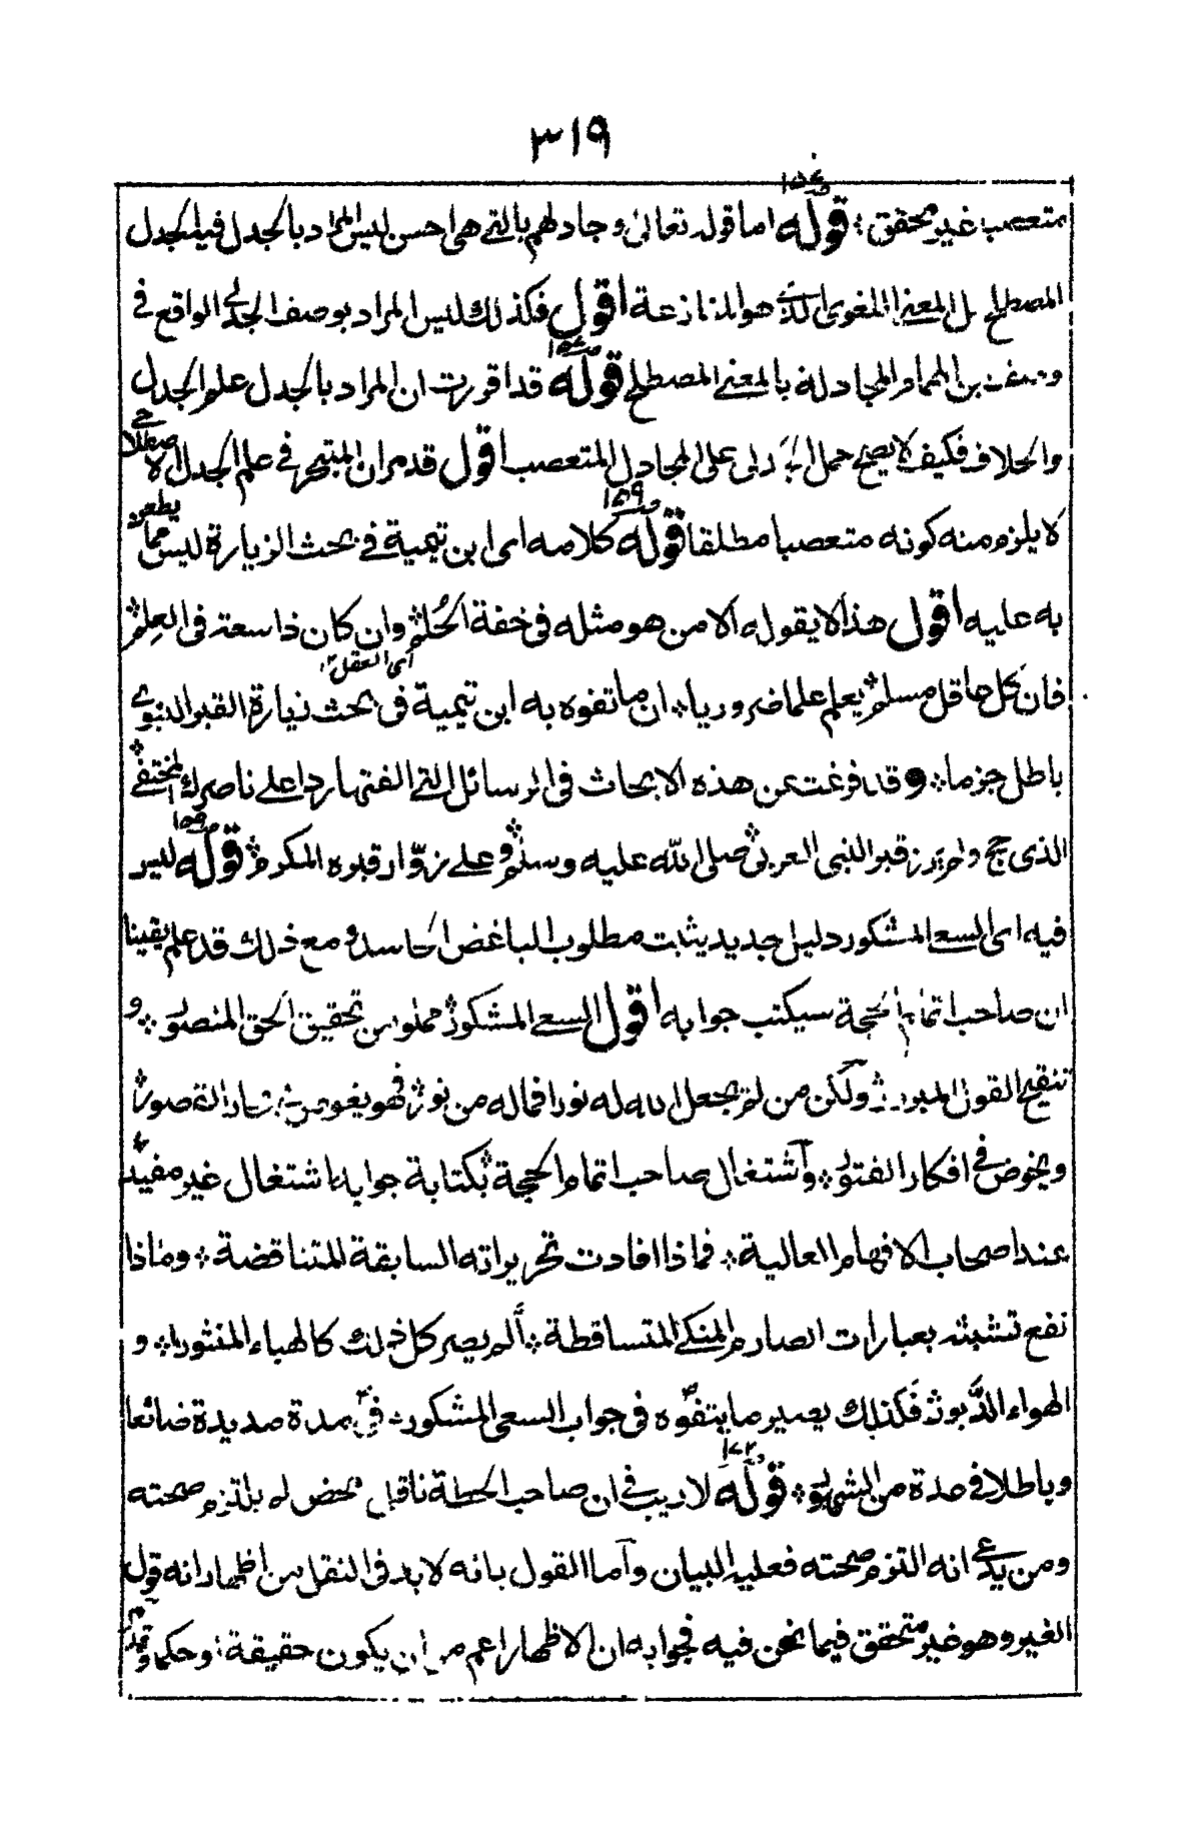 ٣١٩
متعصب غير محقق؛ قوله ص١٥٤ اما قوله تعالى وجادلهم بالتي هي احسن ليس المراد بالجدل فيه الجدل
المصطلح بل المعنى اللغوي الذي هو المنازعة اقول فكذلك ليس المراد بوصف الجدلي الواقع في
وصف بن الهمام المجادلة بالمعنى المصطلح قوله قد اقررت ان المراد بالجدل علم الجدل
والخلاف فكيف لا يصح حمل الجدلي على المجادل المتعصب اقول قد مر ان المتبحر في علم الجدل الاصطلاحي
لا يلزم منه كونه متعصبا مطلقا قوله ص١٥٩ كلامه اي ابن تيمية في بحث الزيارة ليس مما يطعن
به عليه اقول هذا لا يقوله الا من هو مثله في خفة الحلم اي العقل ١٢ وان كان ذا سعة في العلم
فان كل عاقل مسلم يعلم علما ضروريا ان ما تفوه به ابن تيمية في بحث زيارة القبر النبوي
باطل جزما وقد فرغت عن هذه الابحاث في الرسائل التي الفتها ردا على ناصرك المختفي
الذي حج ولم يزر قبر النبي العربي صلى الله عليه وسلم وعلى زوّار قبره المكرم قوله ص١٥٩ ليس
فيه اي السعي المشكور دليل جديد يثبت مطلوب الباغض الحاسد ومع ذلك قد علم يقينا
ان صاحب اتمام الحجة سيكتب جوابه اقول السعي المشكور مملو من تحقيق الحق المنصور و
تنقيح القول المبرور ولكن من لم يجعل الله له نورا فما له من نور فهو يغوص في
ويخوض في افكار الفتور واشتغال صاحب اتمام الحجة بكتابة جوابه اشتغال غير مفيد
عند اصحاب الافهام العالية فماذا افادت تحريراته السابقة المتناقضة وماذا
نفع تشبثه بعبارات الصارم المنكي المتساقطة ألم يصر كل ذلك كالهباء المنثور و
الهواء الدَّبور فكذلك يصير ما يتفوّه في جواب السعي المشكور في مدة مديدة ضائعا
وباطلا في مدة من الشهور قوله لا ريب في ان صاحب الحطة ناقل محض له يلتزم صحته
ومن يدعي انه التزم صحته فعليه البيان واما القول بانه لا بد في النقل من اظهار انه قول
الغير وهو غير متحقق فيما نحن فيه فجوابه ان الاظهار اعم من ان يكون حقيقة او حكما وقد